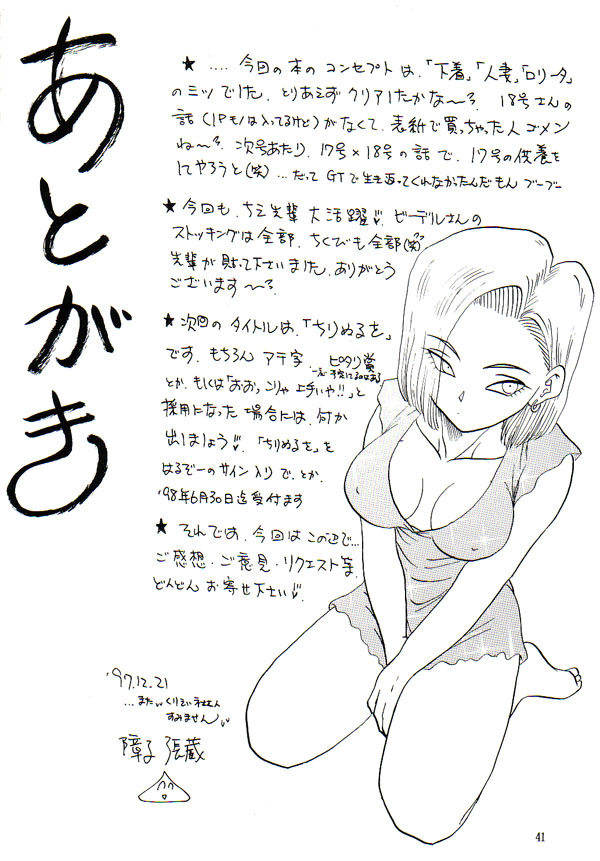 あとがき
★ .... 今回の本のコンセプトは、「下着」「人妻」「ロリータ」
のミツでした。とりあえずクリアしたかな〜? 18号さんの
話(1Pモノは入ってるけど)がなくて、表紙で買っちゃった人ゴメン
ね〜? 次号あたり、17号×18号の話で、17号の供養を
してやろうと(笑)...だってGTで生き返ってくれなかったんだもんブーブー
★ 今回も、ちえ先輩大活躍 ビーデルさんの
ストッキングは全部、ちくびも全部(笑)
先輩が貼って下さいました。ありがとう
ございます〜
★ 次回のタイトルは、「ちりぬるを」
です。もちろんアテ字 ピタリ賞
とか、もしくは「おおっこりゃ上手いや!!」と
採用になった場合には、何か
出しましょう 「ちりぬるを」を
はるぞーのサイン入りで、とか。
'98年6月30日迄受付ます
★ それでは、今回はこの辺で...
ご感想・ご意見・リクエスト等、
どんどんお寄せ下さい
'97.12.21
...また
すみません
障子 張蔵
41